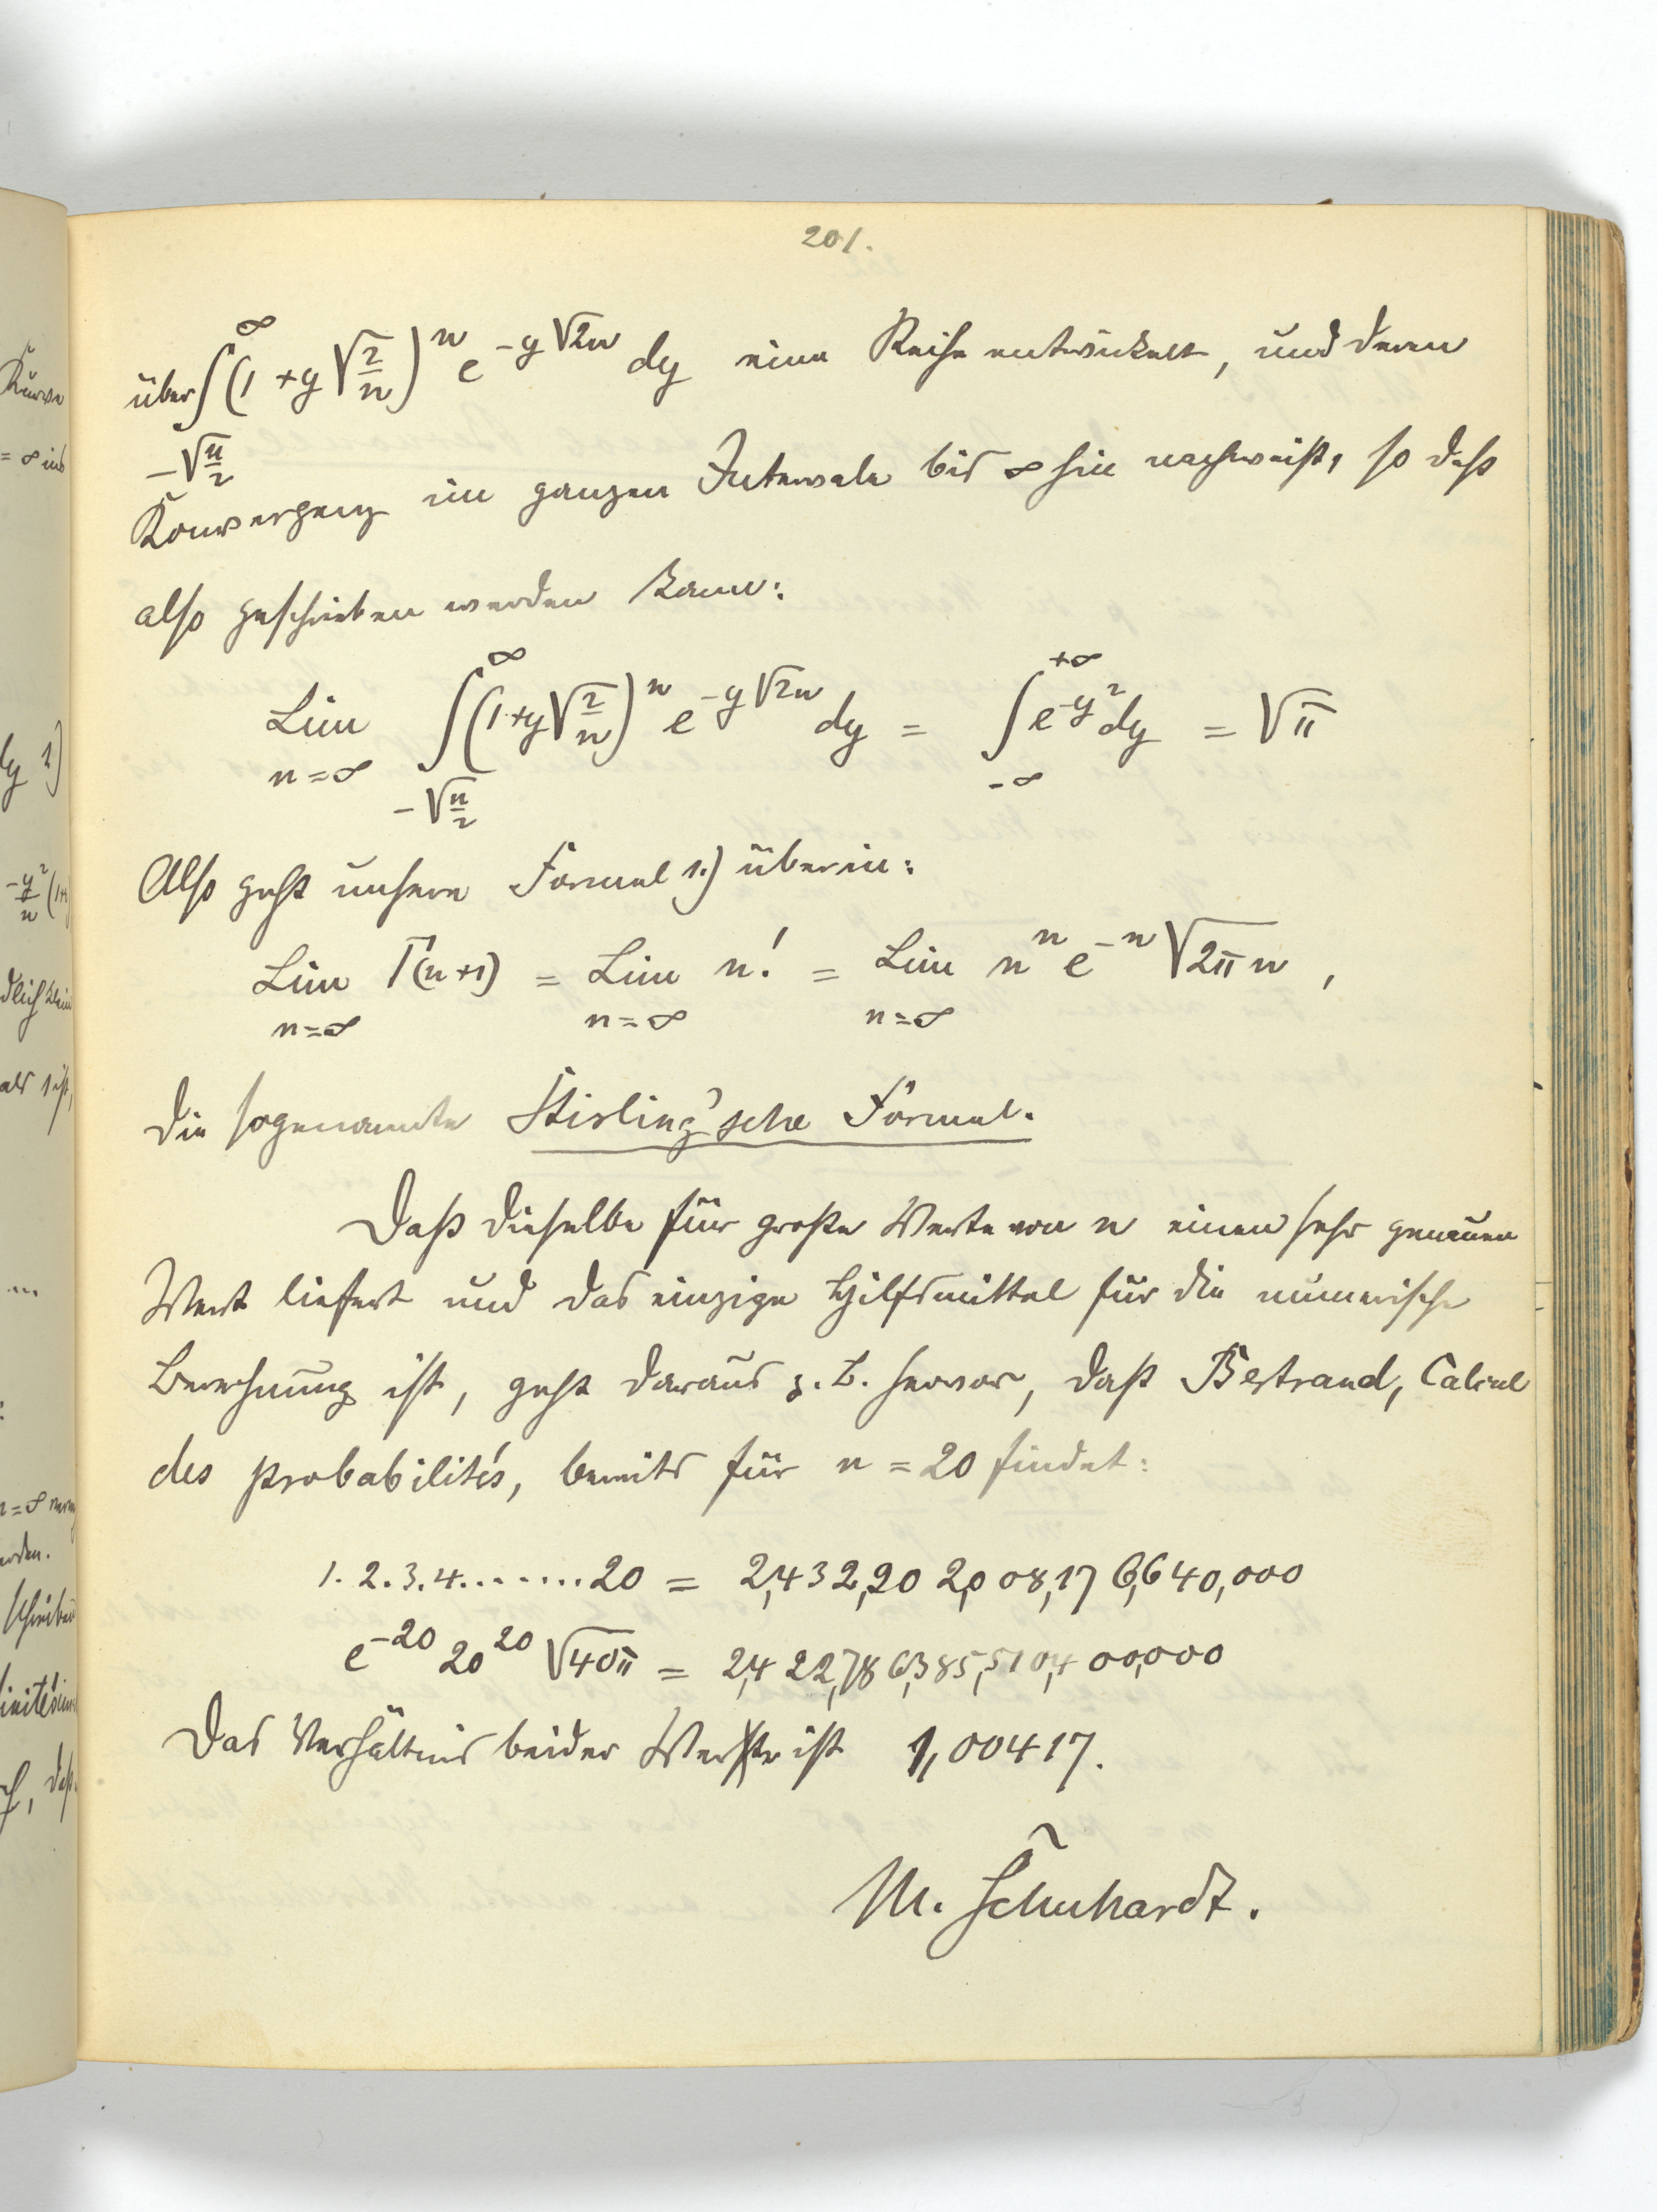 201.
über ∫_{-√(n/2)}^{∞} (1 + y √(2/n))^n e^{-y√2n} dy eine Reihe entwickelt, und deren
Konvergenz im ganzen Intervale bis ∞ hin nachweist, so daß
also geschrieben werden kann:
Lim_{n=∞} ∫_{-√(n/2)}^{∞} (1+y√(2/n))^n e^{-y√2n} dy = ∫_{-∞}^{+∞} e^{-y²} dy = √π
Also geht unsere Formel 1.) über in:
Lim_{n=∞} Γ(n+1) = Lim_{n=∞} n! = Lim_{n=∞} n^n e^{-n} √2πn ,
die sogenannte Stirling'sche Formel.
Daß dieselbe für große Werte von n einen sehr genauen
Wert liefert und das einzige Hilfsmittel für die numerische
Berechnung ist, geht daraus z. B. hervor, daß Bertrand, Calcul
des probabilités, bereits für n = 20 findet:
1. 2. 3. 4. . . . . . . . 20 = 2,432,902,008,176,640,000
e^{-20} 20^{20} √40π = 2,422,786,385,510,400,000
Das Verhältnis beider Werte ist 1,00417.
M. Schuhardt.
Kurve
= ∞ ins
dy 1)